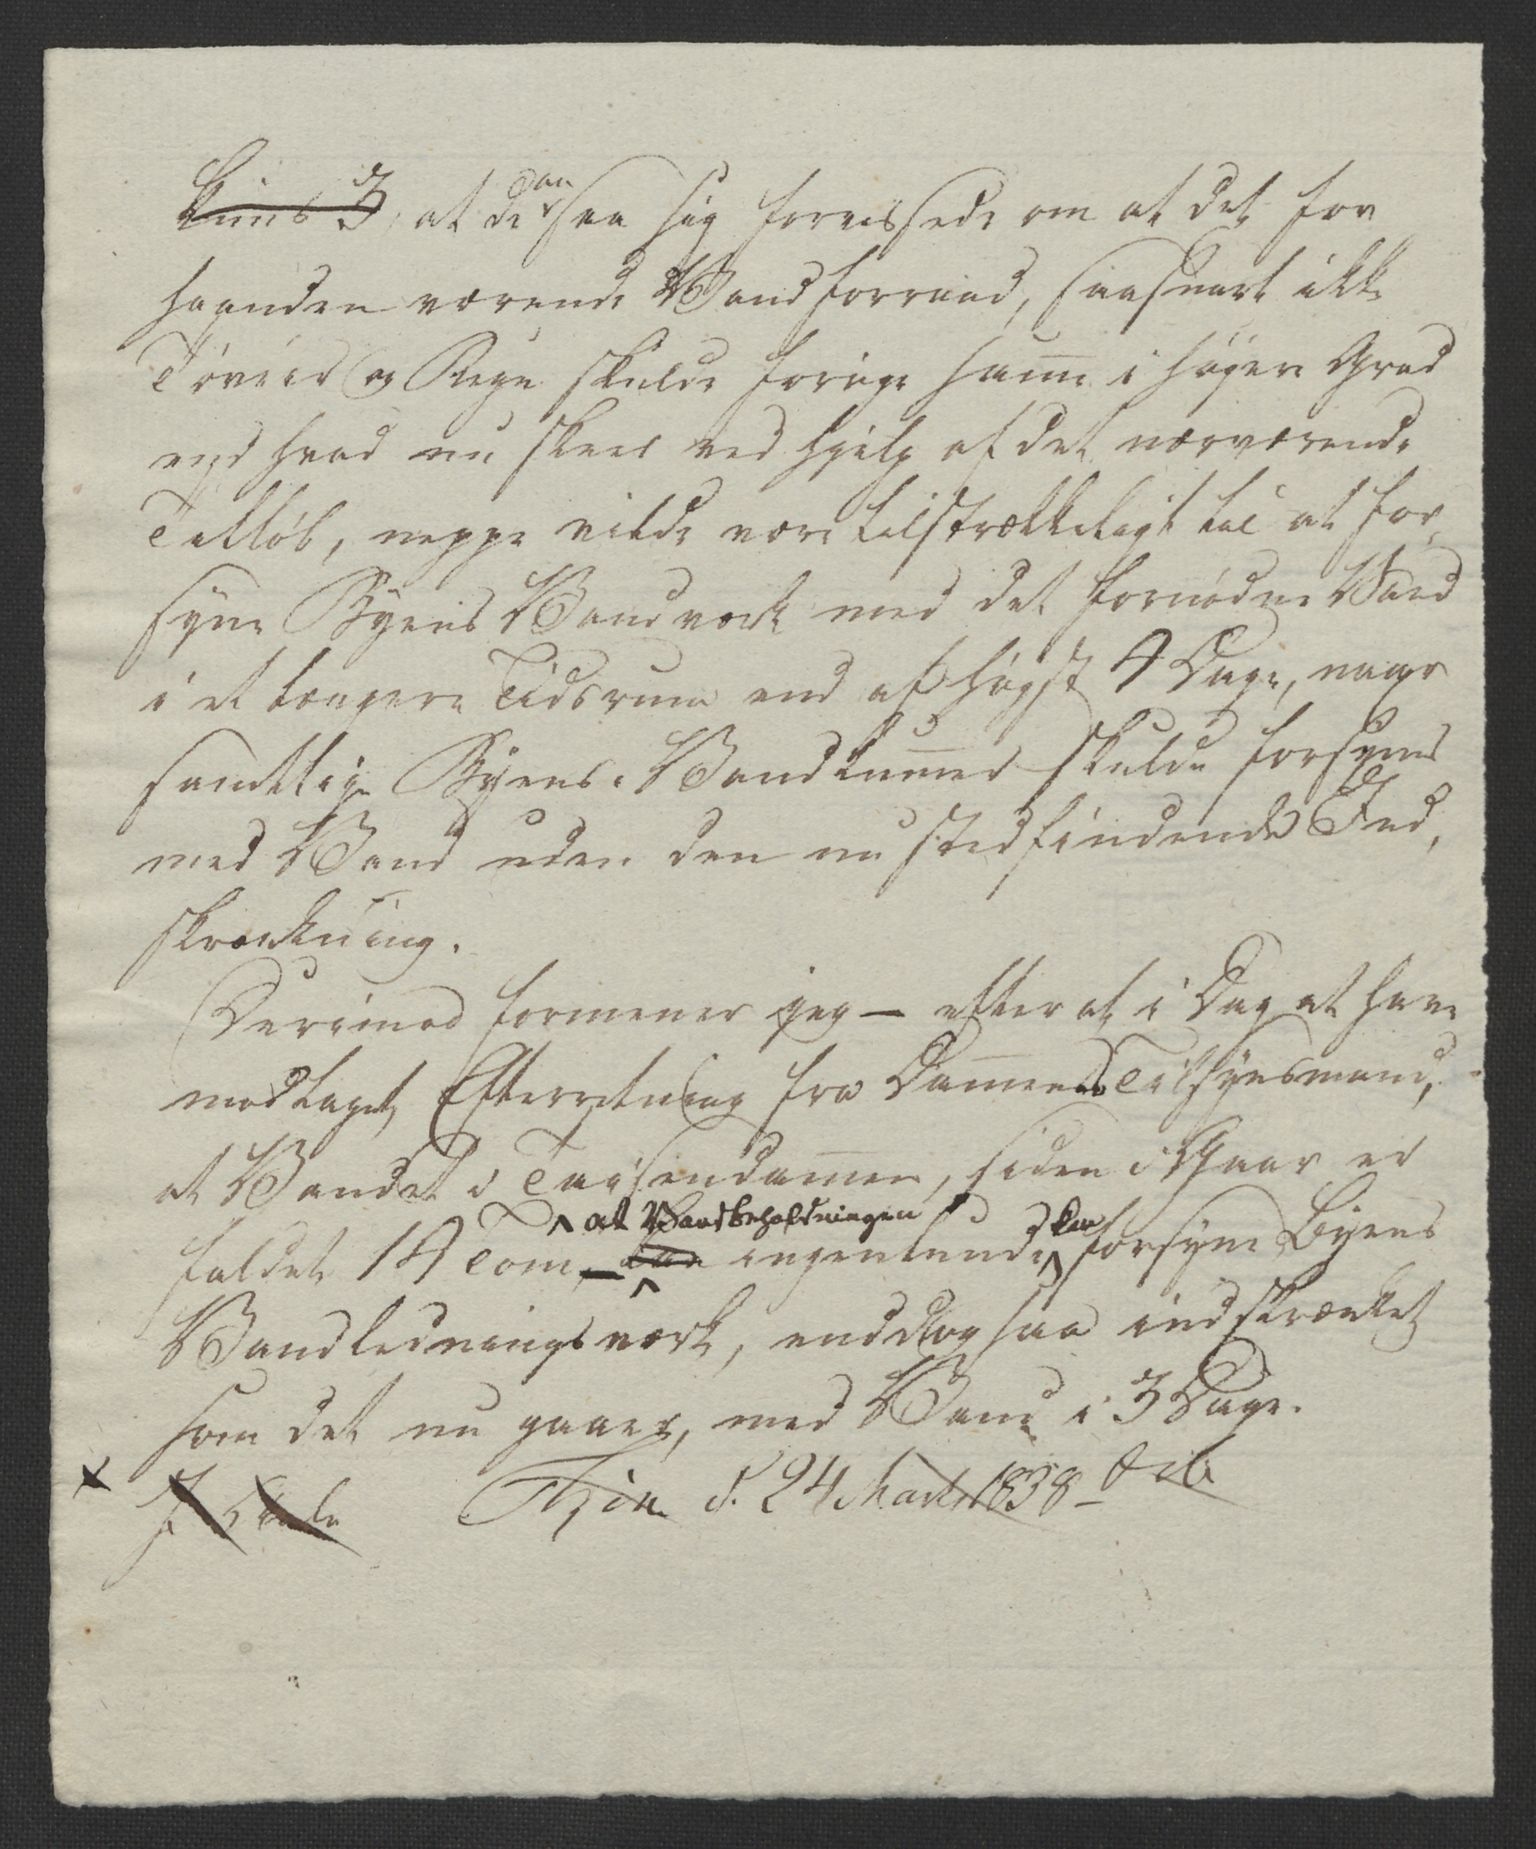 kuns 3, at de kan saa sig forvissede om at det for
haanden værende Vandforraad, saasnart ikke
Töveir og Regn skulde foröge samme i höjere Grad
end hvad nu skeer ved Hjelp af det nærværende
Tilløb, neppe vilde være tilstrækkeligt til at for,
syne Byens Vandværk med det fornödne Vand
i et længere Tidsrum end af høgst 4 Dage, naar
samtlige Byens Vandkummer skulde forsynes
med Vand uden den nu stedfindende Ind,
skrænkning.
Derimod formener jeg – efter at i Dag at have
modtaget Efterretning fra Dammens Tilsynsmand,
at Vandet i Taisendammen, siden i Gaar er
faldet 14 Tom, at Vandbeholdningen ingenlunde kan forsyne Byens
Vandledningsværk, enddog saa indskrænket
som det nu gaaer, med Vand i 3 Dage.
Thjem d. 24 Marts 1838